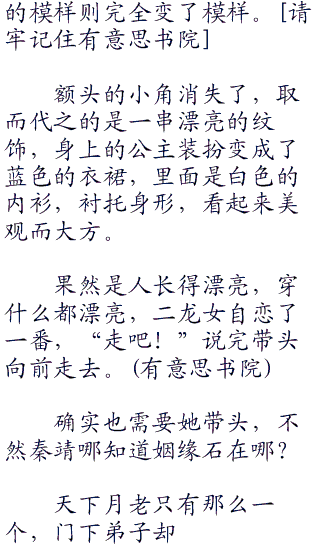 的模样则完全变了模样。 [请
牢记住有意思书院]
额头的小角消失了，取
而代之的是一串漂亮的纹
饰，身上的公主装扮变成了
蓝色的衣裙，里面是白色的
内衫，衬托身形，看起来美
观而大方。
果然是人长得漂亮，穿
什么都漂亮，二龙女自恋了
一番，“走吧！”说完带头
向前走去。 (有意思书院)
确实也需要她带头，不
然秦靖哪知道姻缘石在哪？
天下月老只有那么一
个，门下弟子却